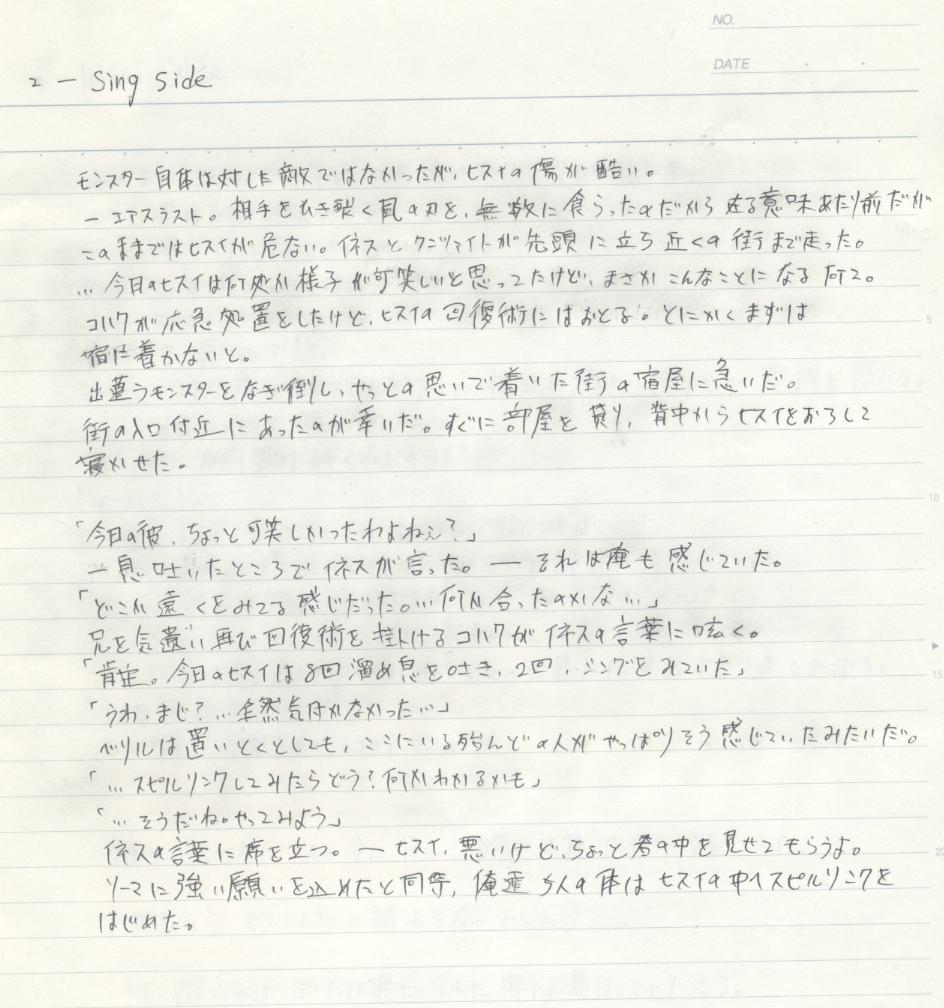 NO.
DATE
2 ー Sing Side
モンスター自体は対した敵ではなかったが、ヒスイの傷が酷い。
ー エアスラスト。相手をひき裂く風の刃を、無数に食らったのだから ある意味あたり前だが
このままではヒスイが危ない。イネスとクンツァイトが先頭に立ち近くの街まで走った。
… 今日のヒスイは何処か様子が可笑しいと思ってたけど、まさかこんなことになる何て。
コハクが応急処置をしたけど、ヒスイの回復術にはおとる。とにかくまずは
宿に着かないと。
出逢うモンスターをなぎ倒し、やっとの思いで着いた街の宿屋に急いだ。
街の入口付近にあったのが幸いだ。すぐに部屋を貸り、背中からヒスイをおろして
寝かせた。
「今日の彼、ちょっと可笑しかったわよねぇ？」
一息吐いたところでイネスが言った。ー それは俺も感じていた。
「どこか遠くをみてる感じだった。…何か合ったのかな…」
兄を気遣い再び回復術を掛けるコハクがイネスの言葉に呟く。
「肯定。今日のヒスイは8回溜め息を吐き、2回、シングをみていた」
「うわ、まじ？…全然気付かなかった…」
ベリルは置いとくとしても、ここにいる殆んどの人がやっぱりそう感じていたみたいだ。
「…スピルリンクしてみたらどう？何かわかるかも」
「…そうだね。やってみよう」
イネスの言葉に席を立つ。ー ヒスイ、悪いけど、ちょっと君の中を見せてもらうよ。
ソーマに強い願いを込めたと同等、俺達5人の体はヒスイの中へスピルリンクを
はじめた。
5
10
15
20